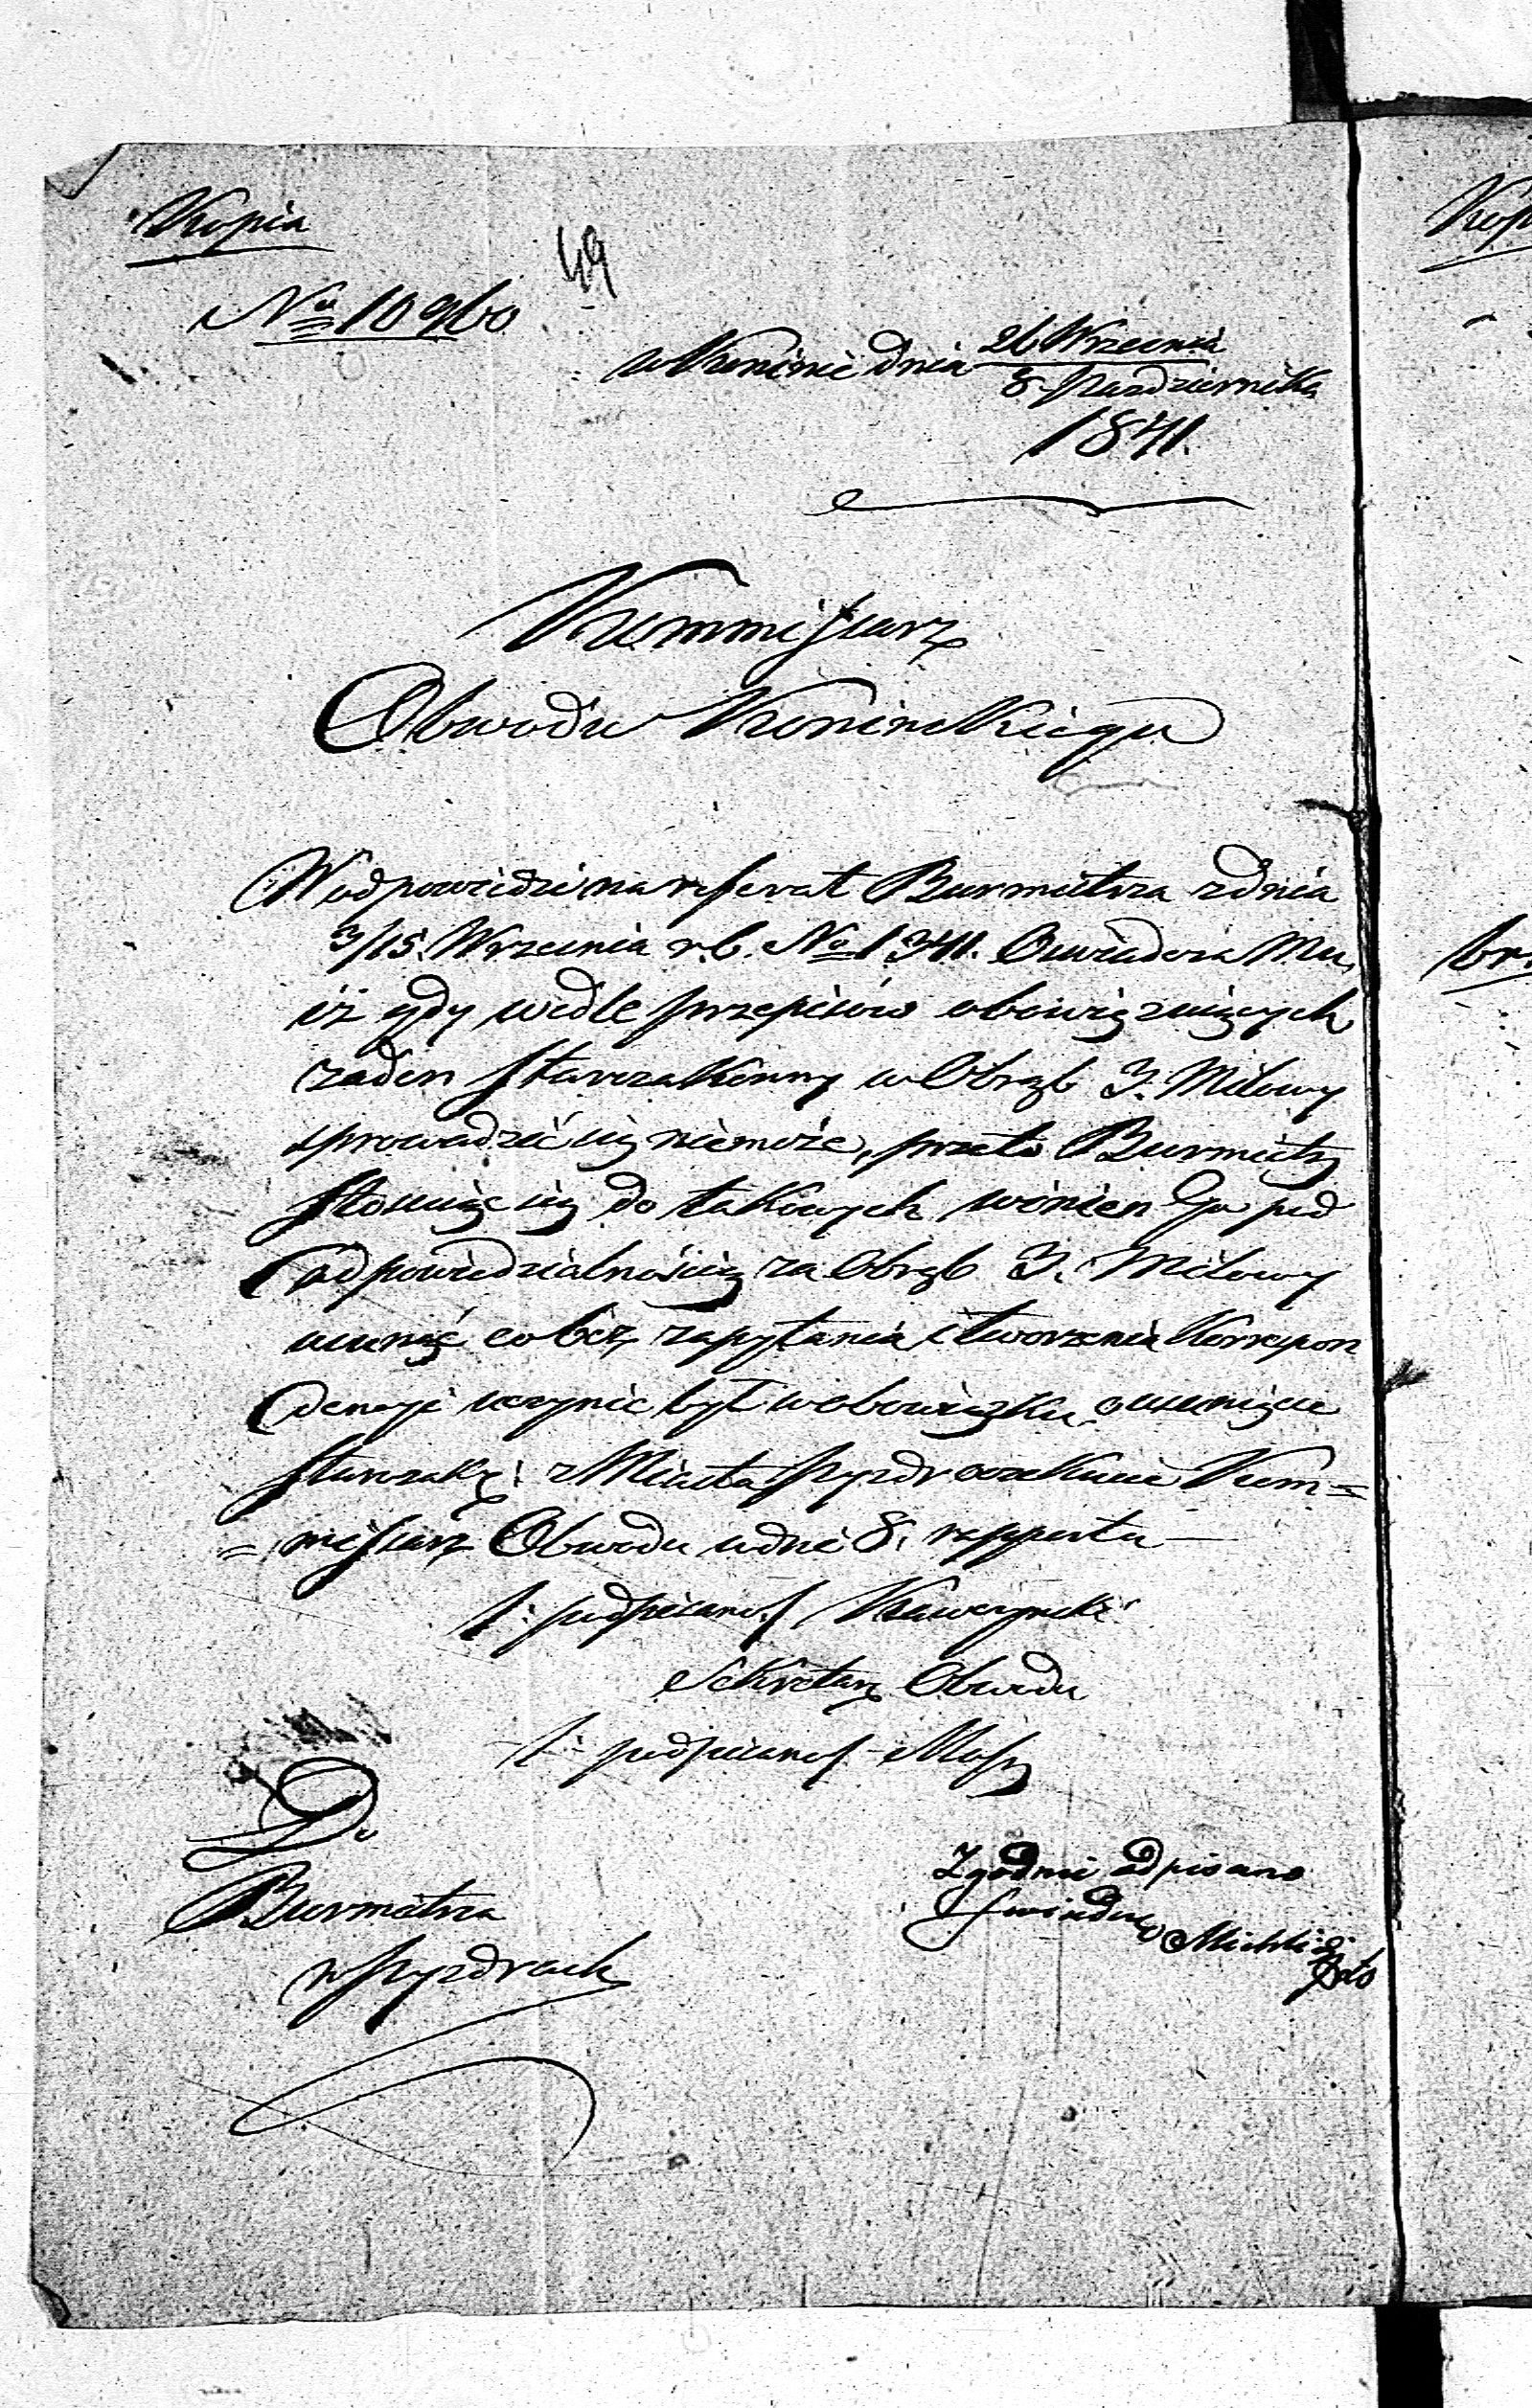 Kopia
49
No 10960
w Koninie dnia 26 Września
8 Pazdziernika
1841.
Kommissarz
Obwodu Koninskiego
W odpowiedzi na rapport Burmistrza z dnia
3/15. Września r.b. No 1341. Oświadcza Mu,
iż gdy wedle przepisów obowiązuiących
żaden Starozakonny w Obręb 3. Milowy
sprowadzić się niemoże, przeto Burmistrz
stosuiąc się do takowych winien Go pod
odpowiedzialnością za Obręb 3. Milowy
usunąć co bez zapytania i tworzenia Korrespon
dencyi uczynić był w obowiązku, o usunięcie
Starozak: z Miasta Pyzdr oczekuie Kom=
=missarz Obwodu w dni 8. rapportu —
/:podpisano/ Kawczynski
Sekretarz Obwodu
/:podpisano/
Do
Burmistrza
w Pyzdrach
Zgodnie odpisano
Kop